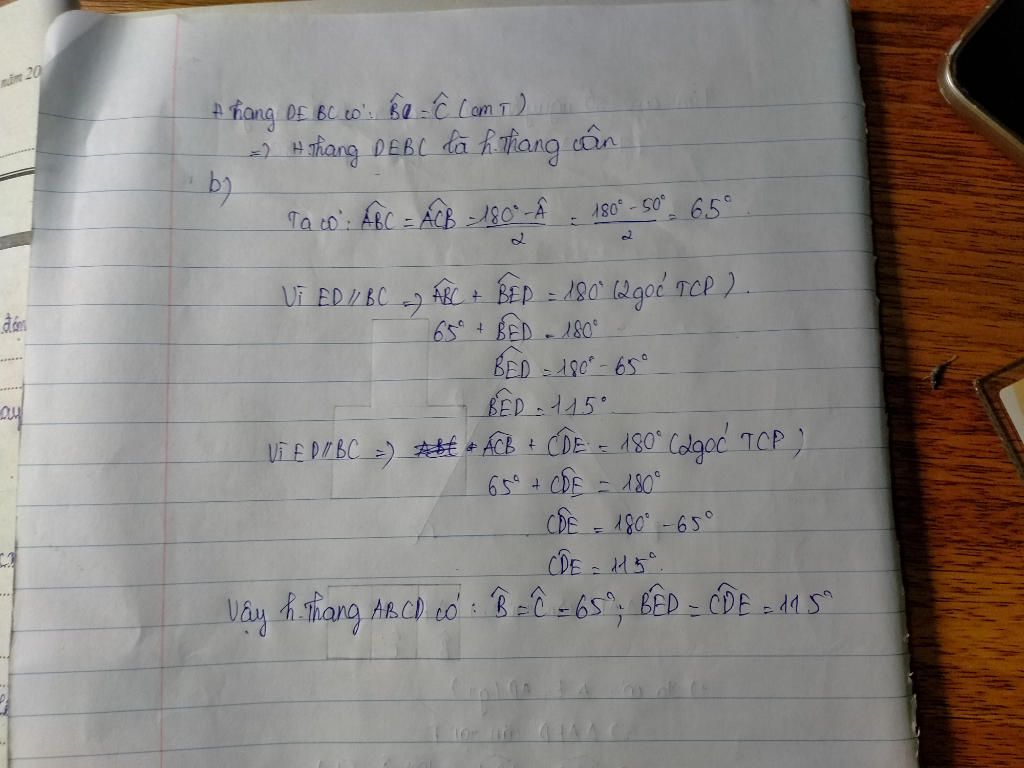 năm 20
H thang DEBC có: B̂ = Ĉ (cmT)
=> H thang DEBC là h.thang cân
b)
Ta có: ABC = ACB = 180° - Â / 2 = 180° - 50° / 2 = 65°.
Vì ED // BC => ABC + BED = 180° (2 góc TCP).
65° + BED = 180°
BED = 180° - 65°
BED = 115°.
Vì ED // BC => ACB + CDE = 180° (2 góc TCP)
65° + CDE = 180°
CDE = 180° - 65°
CDE = 115°.
Vậy h.thang ABCD có: B̂ = Ĉ = 65°; BED = CDE = 115°